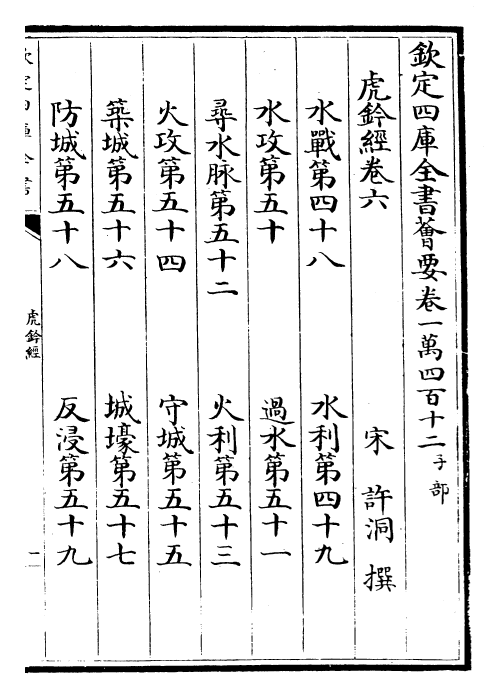 欽定四庫全書薈要卷一萬四百十二子部
虎鈐經卷六　宋　許洞　撰
水戰第四十八　水利第四十九
水攻第五十　過水第五十一
尋水脉第五十二　火利第五十三
火攻第五十四　守城第五十五
築城第五十六　城壕第五十七
防城第五十八　反浸第五十九
欽定四庫全書
虎鈐經
一